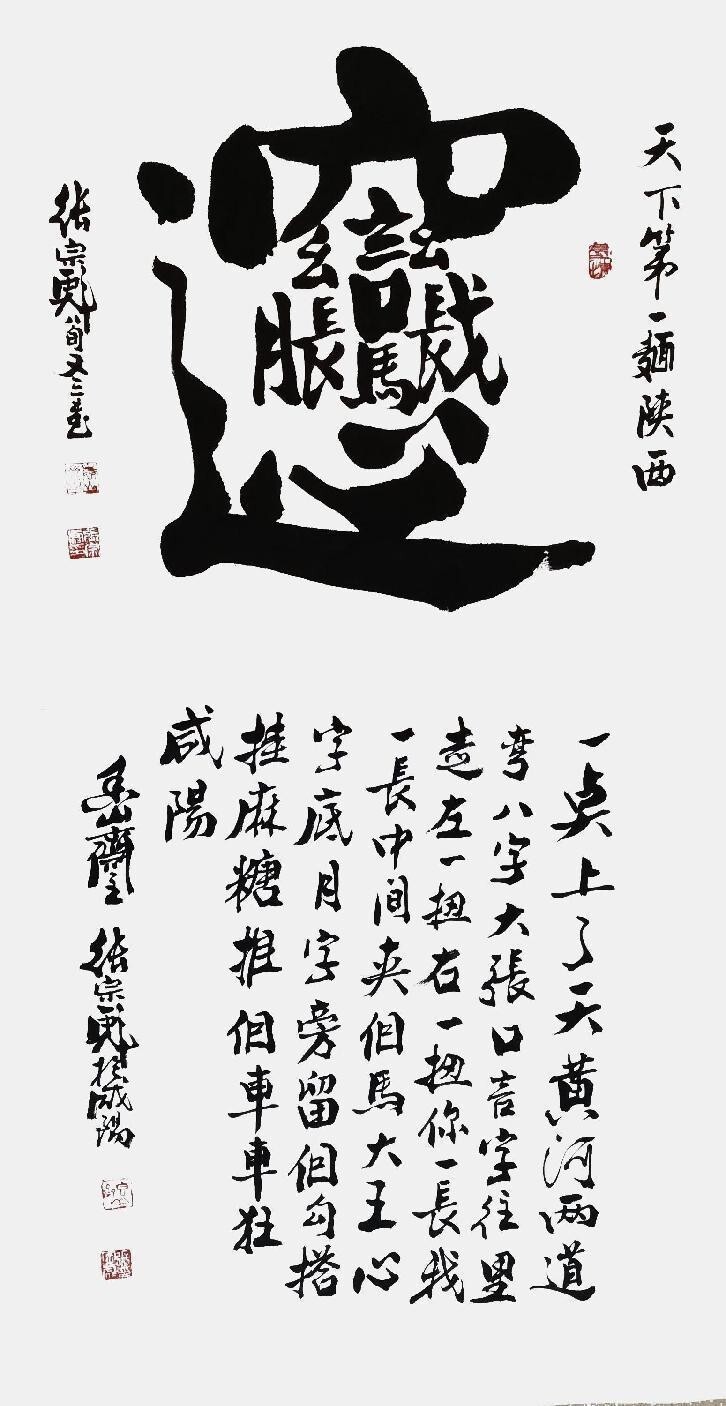 天下第一麵陝西
𰻞
張宗 八旬又三書
一点上了天黄河两道
弯八字大張口言字往里
走左一扭右一扭你一長我
一長中间夾個馬大王心
字底月字旁留個勾搭
挂麻糖推個車車狂
咸陽
張宗 於咸陽